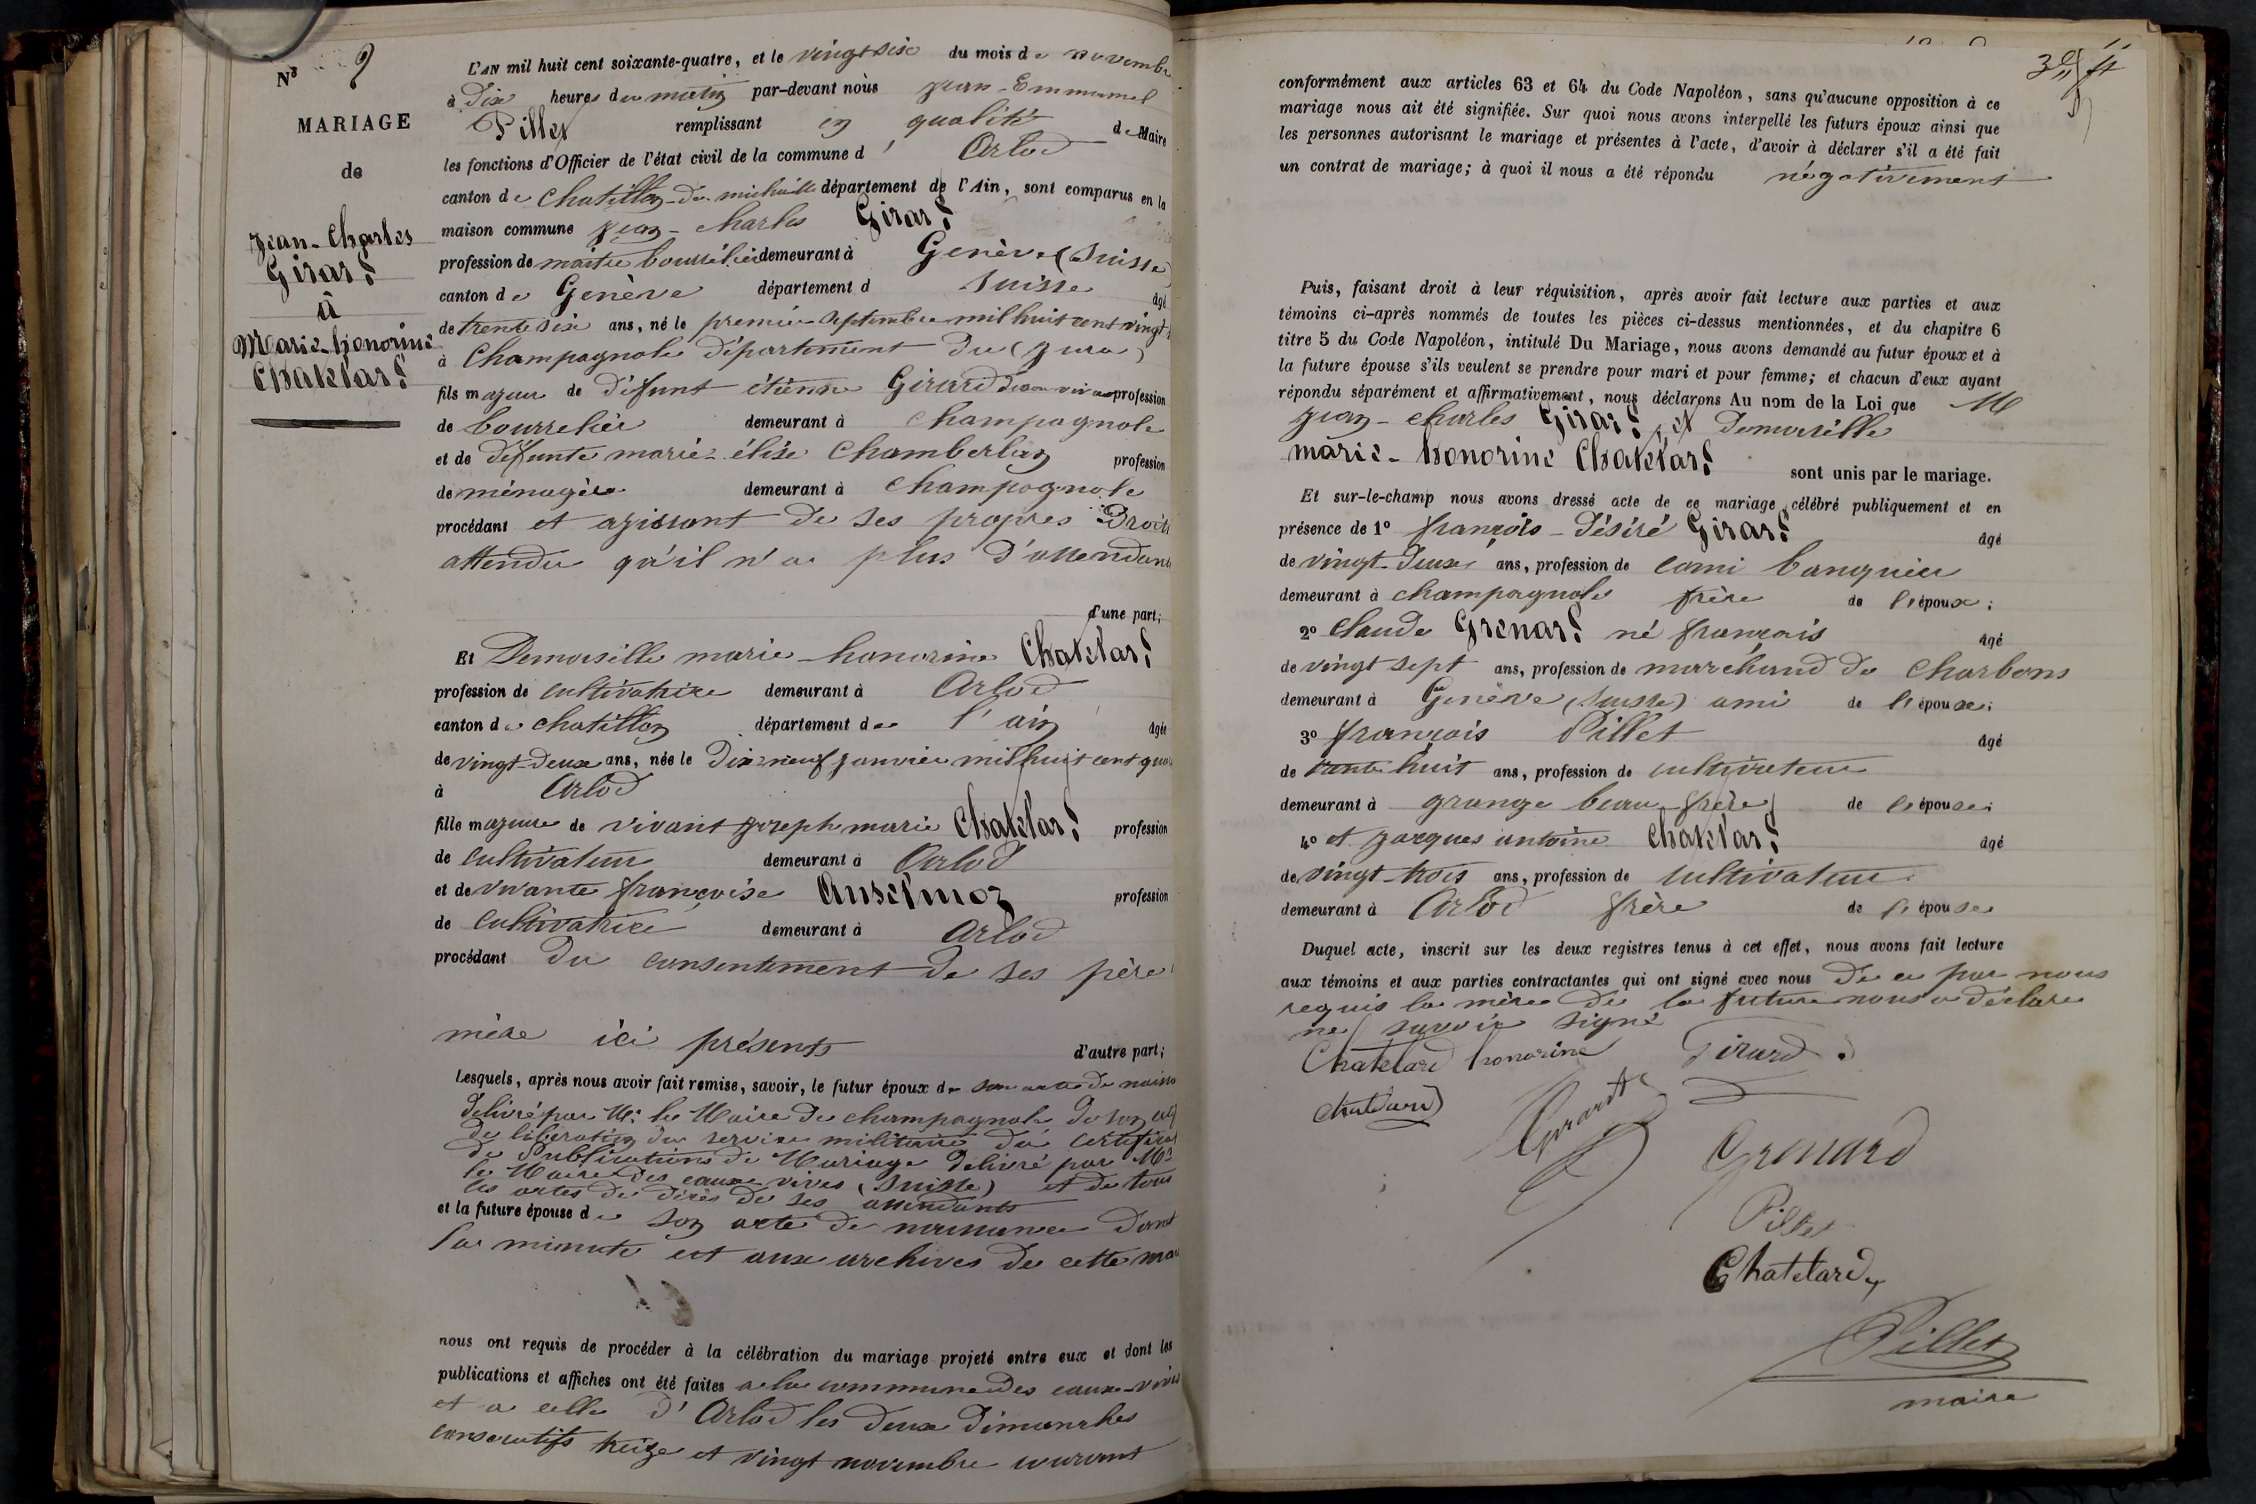 N° 9
MARIAGE
de
Jean-Charles
Girard
à
Marie-honorine
Chatelard
L'AN mil huit cent soixante-quatre, et le vingt six du mois de novembre
à Dix heures du matin par-devant nous Jean-Emmanuel
Pillet remplissant en qualité de Maire
les fonctions d'Officier de l'état civil de la commune d' Arlod
canton de Chatillon-de-michaille département de l'Ain, sont comparus en la
maison commune Jean-charles Girard
profession de maitre bourrélier demeurant à Genève (Suisse)
canton de Genève département d Suisse âgé
de trente six ans, né le premier septembre mil huit cent vingt
à Champagnole département du (Jura)
fils majeur de défunt étienne Girard de son vivant profession
de bourrelier demeurant à champagnole
et de défunte marie-élise Chamberlan profession
de ménagère demeurant à Champagnole
procédant et agissant de ses propres Droits
attendu qu'il n'a plus d'assendants
d'une part;
Et Demoiselle marie-honorine Chatelard
profession de cultivatrice demeurant à Arlod
canton de chatillon département de l'ain âgée
de vingt-deux ans, née le Dix neuf janvier mil huit cent qua
à Arlod
fille majeure de vivant joseph marie Chatelard profession
de cultivateur demeurant à Arlod
et de vivante françoise Anselmoz profession
de Cultivatrice demeurant à Arlod
procédant du consentement de ses père
mère ici présents d'autre part;
Lesquels, après nous avoir fait remise, savoir, le futur époux de son acte de naiss
délivré par Mr le Maire de champagnole de son
de libération du service militaire du certificat
de Publications de Mariage délivré par Mr
le Maire des eaux vives (Suisse) et de tous
les actes de décès de ses assendants
et la future épouse de son acte de naissance dont
la minute est aux archives de cette mai
nous ont requis de procéder à la célébration du mariage projeté entre eux et dont les
publications et affiches ont été faites a la commune des eaux-vives
et a celle d'Arlod les deux dimanches
consecutifs treize et vingt novembre courant
conformément aux articles 63 et 64 du Code Napoléon, sans qu'aucune opposition à ce
mariage nous ait été signifiée. Sur quoi nous avons interpellé les futurs époux ainsi que
les personnes autorisant le mariage et présentes à l'acte, d'avoir à déclarer s'il a été fait
un contrat de mariage; à quoi il nous a été répondu négativement
Puis, faisant droit à leur réquisition, après avoir fait lecture aux parties et aux
témoins ci-après nommés de toutes les pièces ci-dessus mentionnées, et du chapitre 6
titre 5 du Code Napoléon, intitulé Du Mariage, nous avons demandé au futur époux et à
la future épouse s'ils veulent se prendre pour mari et pour femme; et chacun d'eux ayant
répondu séparément et affirmativement, nous déclarons Au nom de la Loi que M
Jean-charles Girard et Demoiselle
marie-honorine Chatelard sont unis par le mariage.
Et sur-le-champ nous avons dressé acte de ce mariage célébré publiquement et en
présence de 1° françois-Désiré Girard âgé
de vingt-deux ans, profession de comi banquier
demeurant à champagnole frère de l'époux;
2° Claude Grenard né français âgé
de vingt sept ans, profession de marchand de Charbons
demeurant à Genève (suisse) ami de l'épouse;
3° françois Pillet âgé
de trente huit ans, profession de cultivateur
demeurant à grange beau-frère de l'épouse;
4° et jacques antoine Chatelard âgé
de vingt-trois ans, profession de cultivateur
demeurant à Arlod frère de l'épouse
Duquel acte, inscrit sur les deux registres tenus à cet effet, nous avons fait lecture
aux témoins et aux parties contractantes qui ont signé avec nous De ce par nous
requis la mère de la future nous a déclaré
ne savoir signé
Chatelard honorine Girard
Chatelard Girard
Grenard
Pillet
Chatelard
Pillet
maire